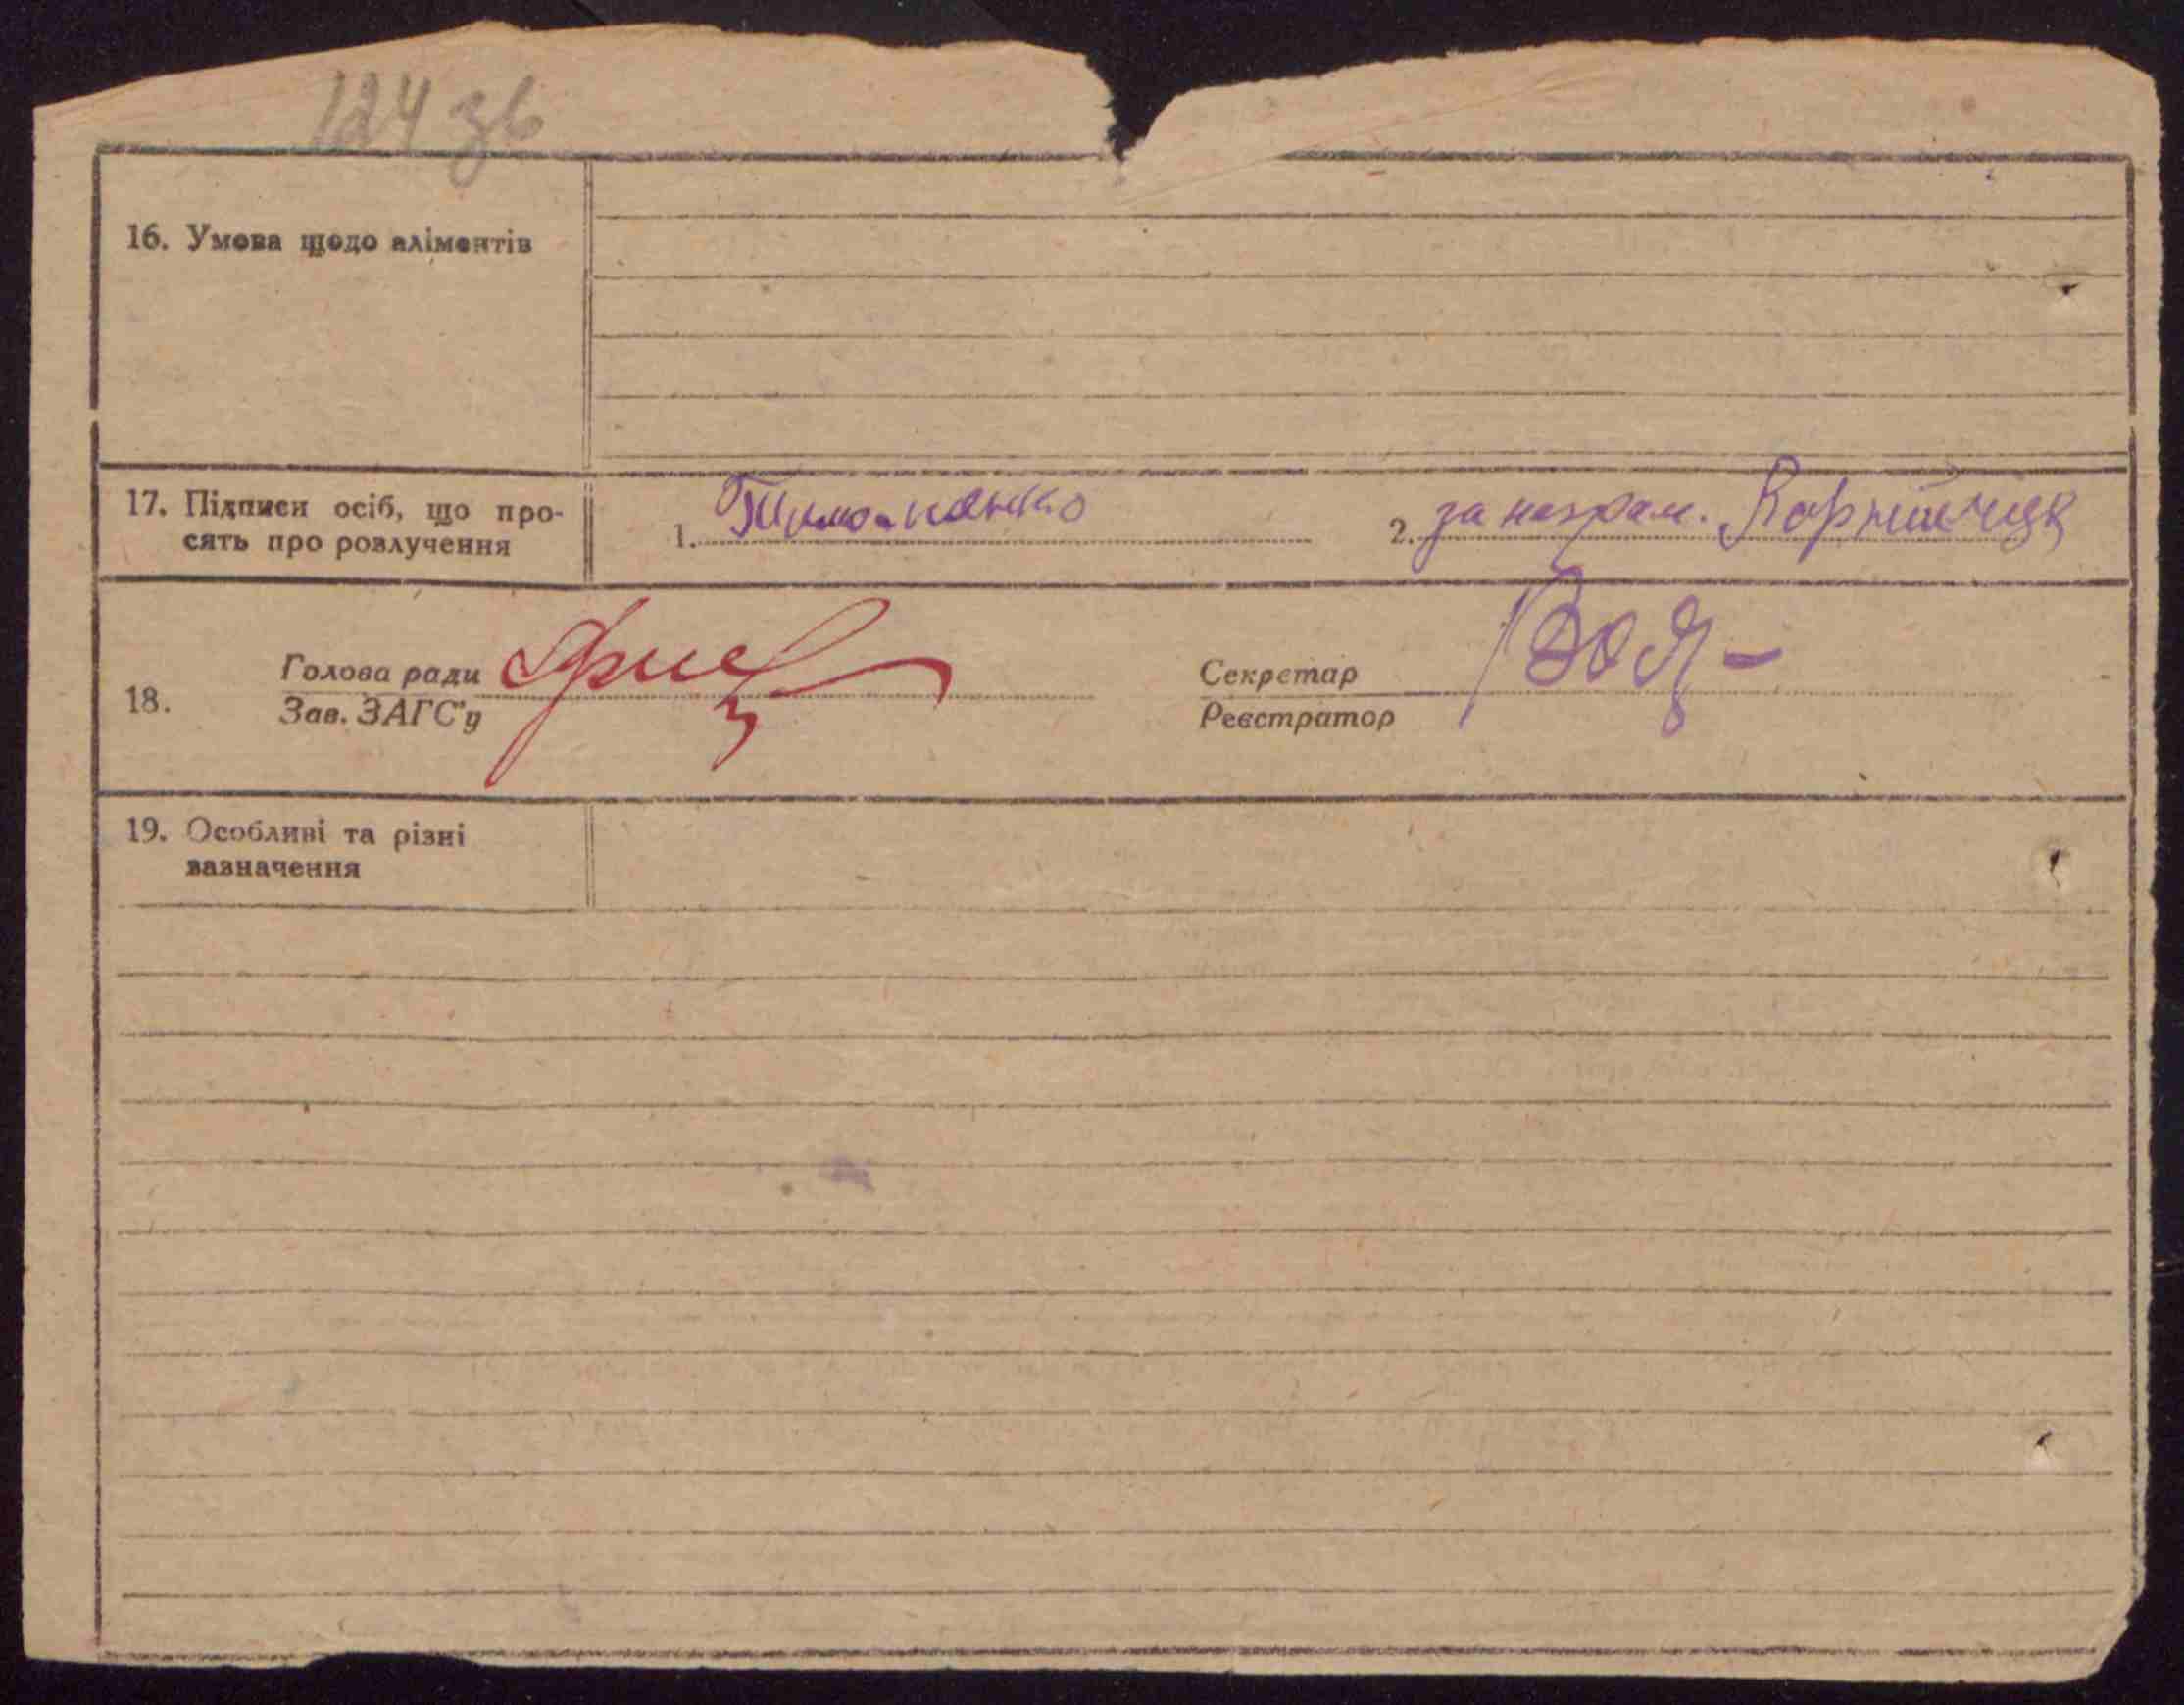 124 зв
16. Умова щодо аліментів
17. Підписи осіб, що про-
сять про розлучення
1. 2. за неграм. Корнійчук
Голова ради Секретар
18.
Зав. ЗАГС'у Реєстратор
19. Особливі та різні
зазначення